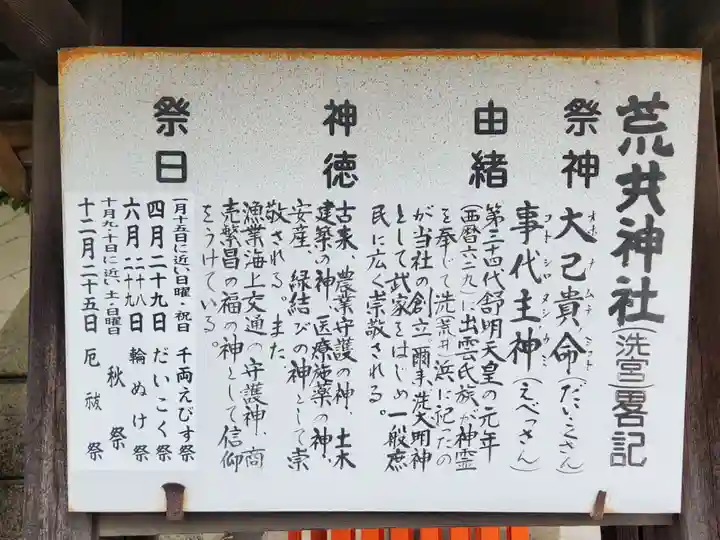 荒井神社(洗宮)畧記
祭神
大己貴命(だいこくさん)
オホナムチミコト
事代主神(えべっさん)
コトシロヌシノカミ
由緒
第三十四代舒明天皇の元年
(西暦六二九)に出雲氏族が神霊
を奉じて洗(荒井)浜に祀たの
が当社の創立。爾来、洗大明神
として武家をはじめ一般庶
民に広く崇敬される。
神徳
古来、農業守護の神、土木
建築の神、医療施薬の神、
安産、縁結びの神として崇
敬される。また、
漁業海上交通の守護神、商
売繁昌の福の神として信仰
をうけている。
祭日
一月十五日に近い日曜・祝日 千両えびす祭
四月二十九日 だいこく祭
六月二十八二十九日 輪ぬけ祭
十月九、十日に近い土・日曜日 秋祭
十二月二十五日 厄祓祭